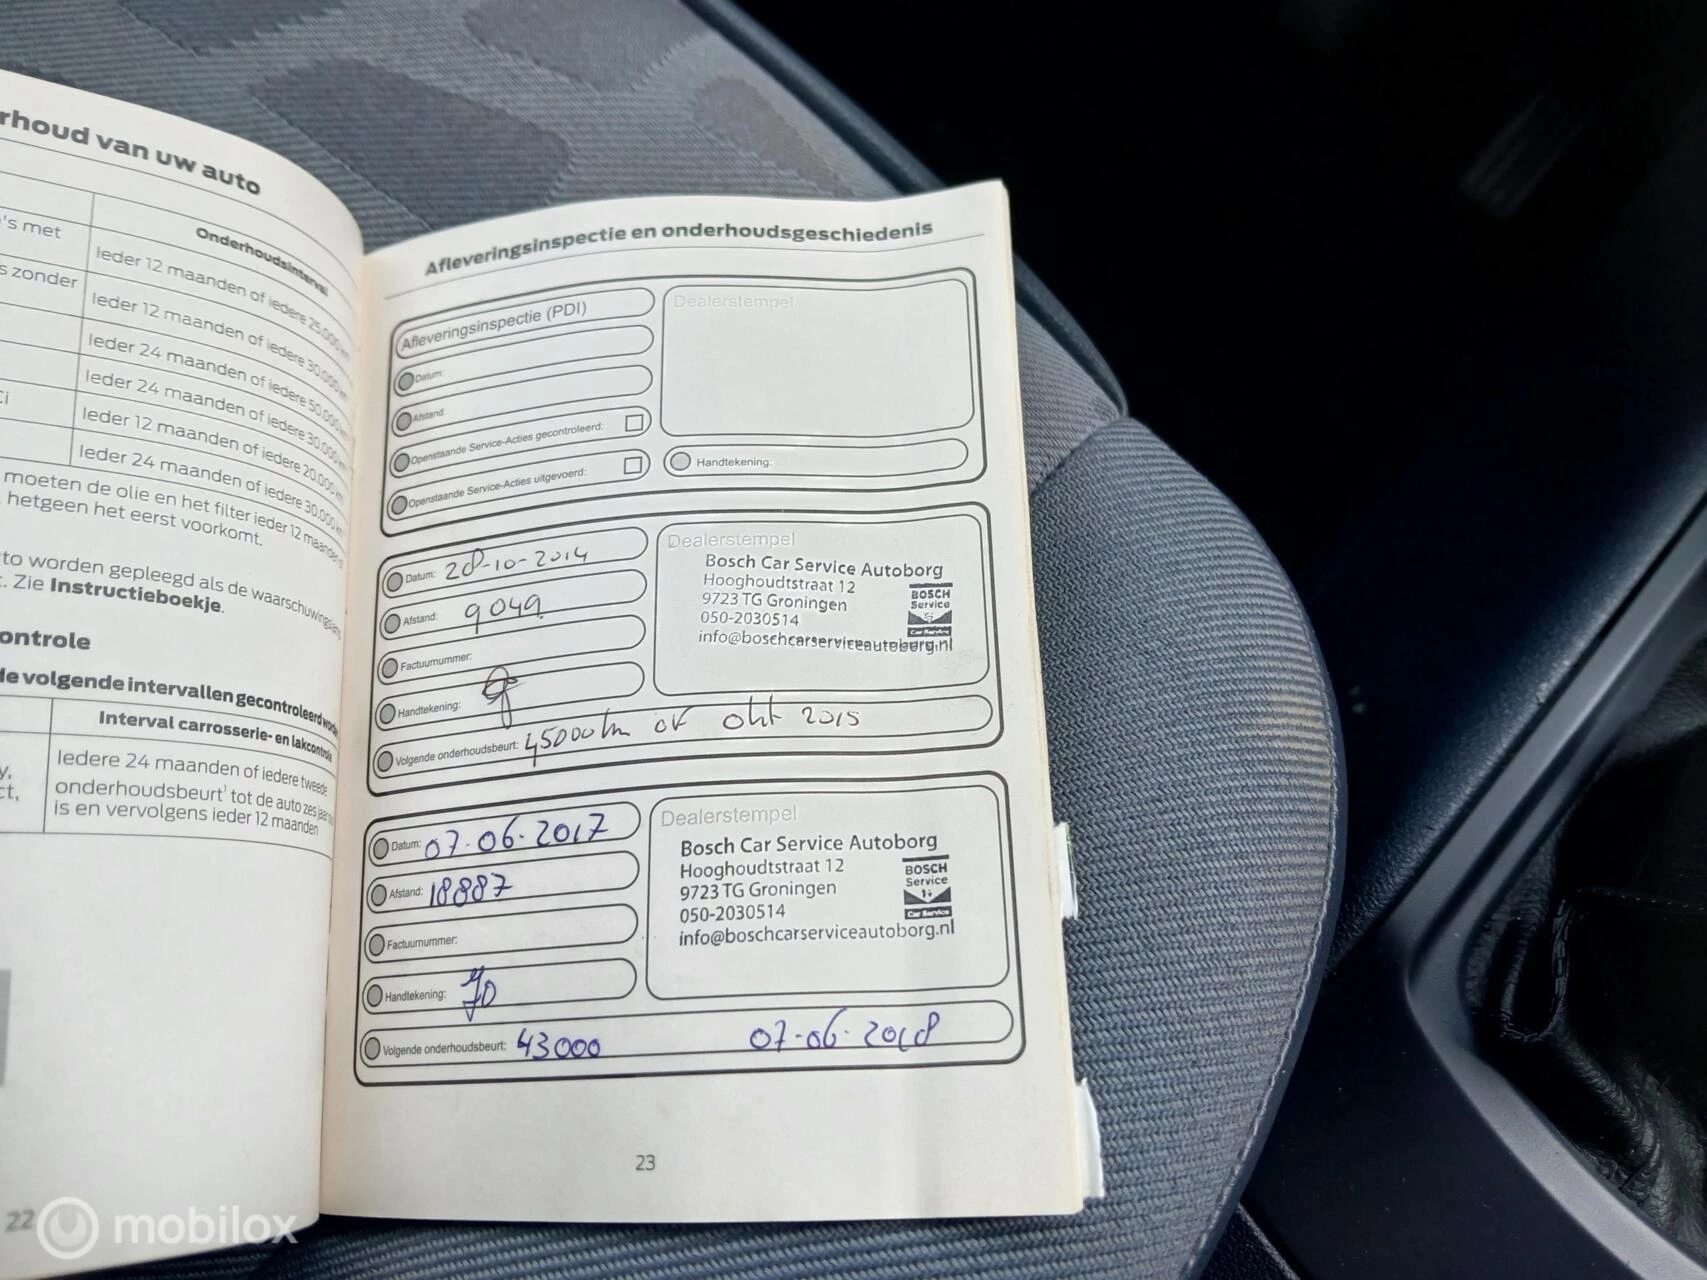 rhoud van uw auto
Onderhoudsinterval
's met
Ieder 12 maanden of iedere 25.000 km
s zonder
Ieder 12 maanden of iedere 30.000 km
Ieder 24 maanden of iedere 50.000 km
Ieder 24 maanden of iedere 30.000 km
Ci
Ieder 12 maanden of iedere 20.000 km
Ieder 24 maanden of iedere 30.000 km
moeten de olie en het filter ieder 12 maanden
hetgeen het eerst voorkomt.
to worden gepleegd als de waarschuwingslamp
. Zie Instructieboekje.
ontrole
de volgende intervallen gecontroleerd worden
Interval carrosserie- en lakcontrole
y,
ct,
Iedere 24 maanden of iedere tweede
onderhoudsbeurt¹ tot de auto zes jaar oud
is en vervolgens ieder 12 maanden
22
Afleveringsinspectie en onderhoudsgeschiedenis
Afleveringsinspectie (PDI)
Datum:
Afstand:
Openstaande Service-Acties gecontroleerd:
Openstaande Service-Acties uitgevoerd:
Dealerstempel
Handtekening:
Datum: 28-10-2014
Afstand: 9049
Factuurnummer:
Handtekening:
Volgende onderhoudsbeurt: 45000 km of okt 2015
Dealerstempel
Bosch Car Service Autoborg
Hooghoudtstraat 12
9723 TG Groningen
050-2030514
info@boschcarserviceautoborg.nl
BOSCH
Service
Car Service
Datum: 07-06-2017
Afstand: 18887
Factuurnummer:
Handtekening:
Volgende onderhoudsbeurt: 43000 07-06-2018
Dealerstempel
Bosch Car Service Autoborg
Hooghoudtstraat 12
9723 TG Groningen
050-2030514
info@boschcarserviceautoborg.nl
BOSCH
Service
Car Service
23
mobilox